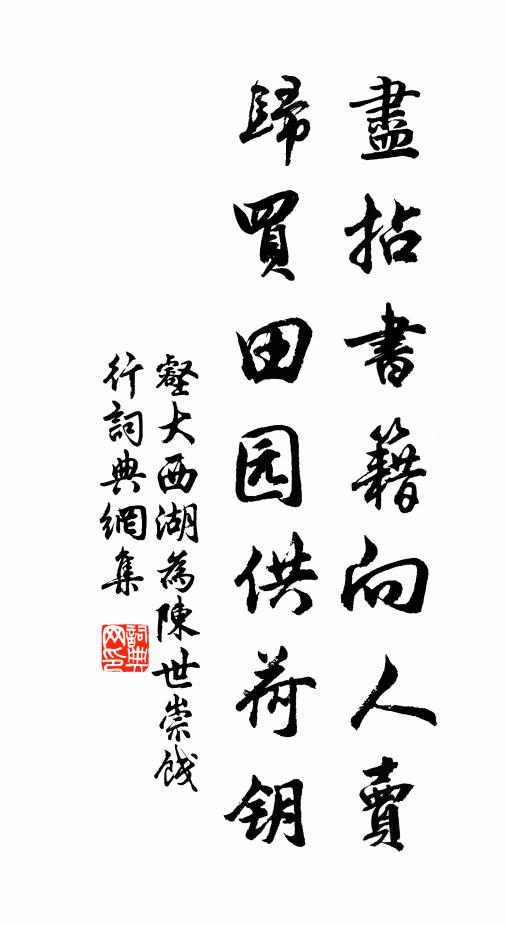 盡拈書籍向人賣
歸買田园供荷钥
壑大西湖為陳世崇餞
行詞典網集
詞典網印